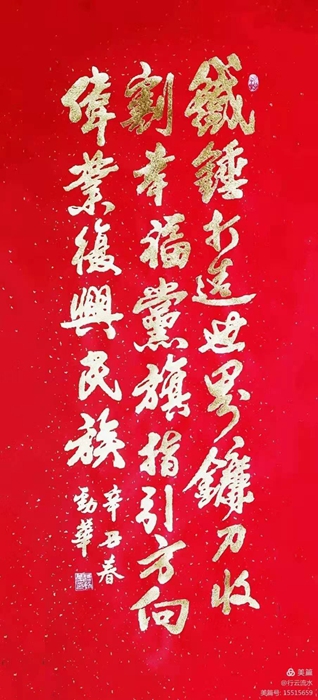 鐵錘打造世界鐮刀收
割幸福黨旗指引方向
偉業復興民族
辛丑春
勁華
美篇
@行云流水
美篇号: 15515659